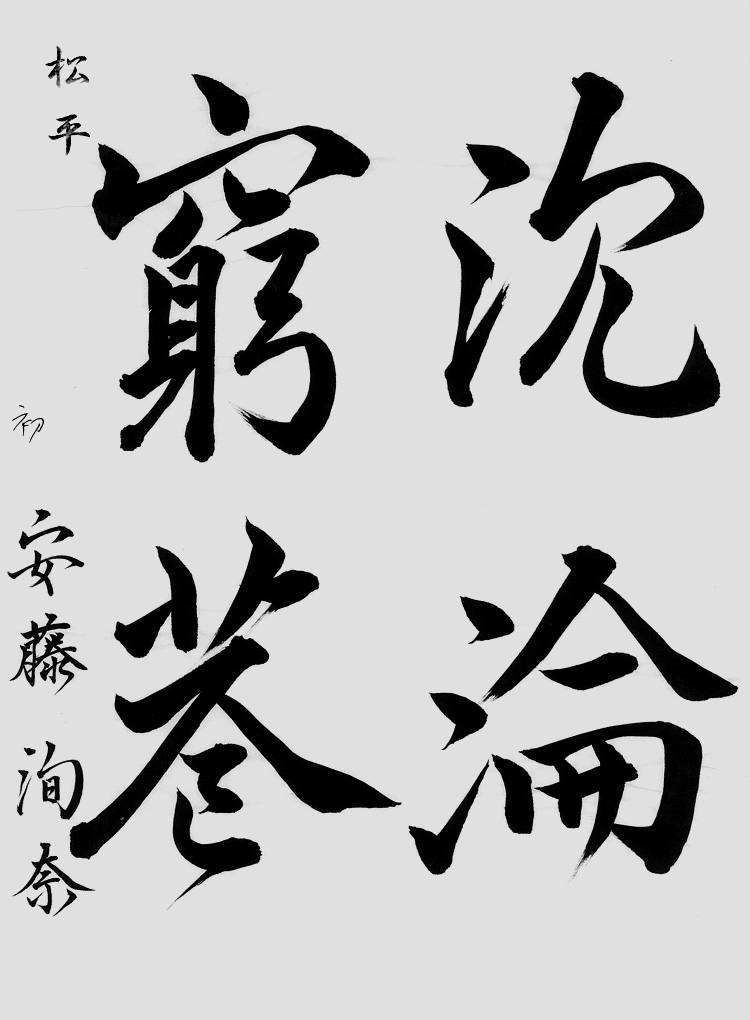 沈淪
窮巷
松平
初
安藤洵奈